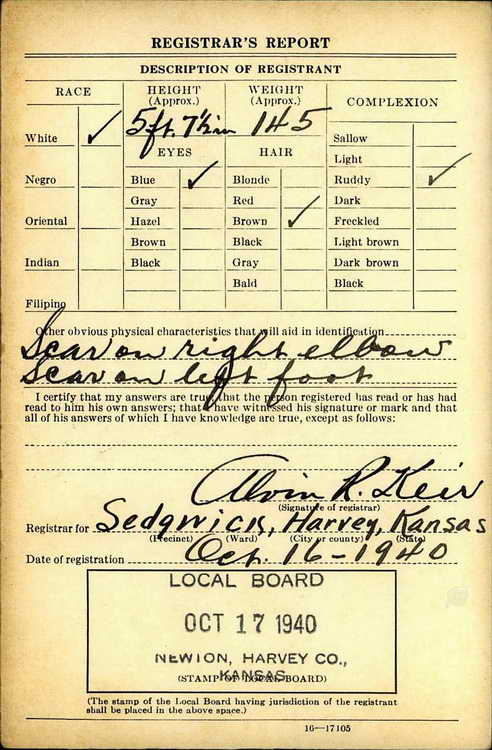 REGISTRAR'S REPORT
DESCRIPTION OF REGISTRANT
RACE
HEIGHT (Approx.)
WEIGHT (Approx.)
COMPLEXION
5 ft. 7½ in
145
White ✓
EYES
HAIR
Sallow
Light
Negro
Blue ✓
Blonde
Ruddy ✓
Gray
Red
Dark
Oriental
Hazel
Brown ✓
Freckled
Brown
Black
Light brown
Indian
Black
Gray
Dark brown
Bald
Black
Filipino
Other obvious physical characteristics that will aid in identification
Scar on right elbow
Scar on left foot
I certify that my answers are true; that the person registered has read or has had
read to him his own answers; that I have witnessed his signature or mark and that
all of his answers of which I have knowledge are true, except as follows:
Alvin R. Keir
(Signature of registrar)
Registrar for Sedgwick, Harvey, Kansas
(Precinct) (Ward) (City or county) (State)
Date of registration Oct. 16-1940
LOCAL BOARD
OCT 17 1940
NEWTON, HARVEY CO.,
KANSAS
(STAMP OF LOCAL BOARD)
(The stamp of the Local Board having jurisdiction of the registrant
shall be placed in the above space.)
16—17105